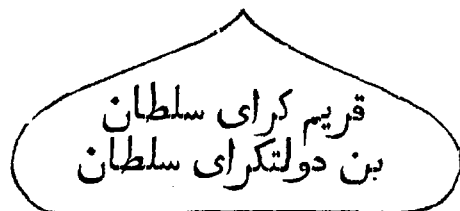 قريم كراى سلطان
بن دولتكراى سلطان